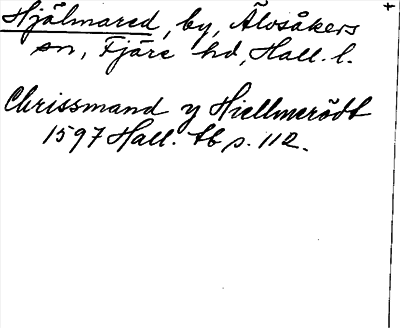 Hjälmared, by, Älvsåkers
sn, Fjäre hd, Hall. l.
Chrissmand y Hiellmerödt
1597 Hall. tb s. 112.